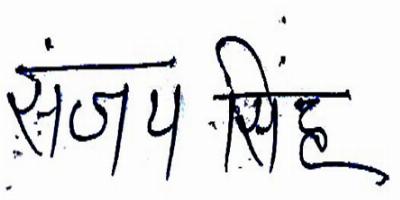 संजय सिंह